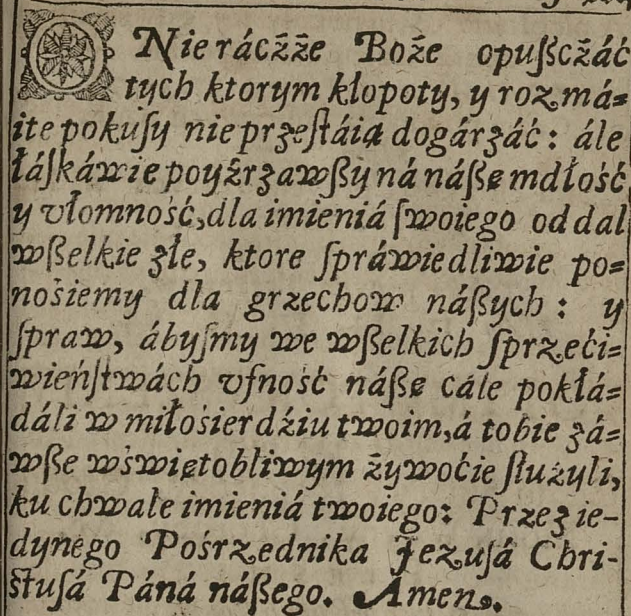 Nie ráczże Boże opuſsczáć
tych ktorym kłopoty, y rozmá=
ite pokuſy nie przeſtáią dogárzáć: ále
łáſkáwie poyźrzawſsy ná náſsę mdłość
y vłomność, dla imieniá ſwoiego oddal
wſselkie złe, ktore ſpráwiedliwie po=
nośiemy dla grzechow náſsych: y
ſpraw, ábyſmy we wſselkich ſprzeći=
wieńſtwách vfność náſsę cále pokłá=
dáli w miłośierdźiu twoim, á tobie zá=
wſse w świętobliwym żywoćie ſłużyli,
ku chwale imieniá twoiego: Przez ie-
dynego Pośrzednika Jezuſá Chri-
ſtuſá Páná náſsego. Amen.